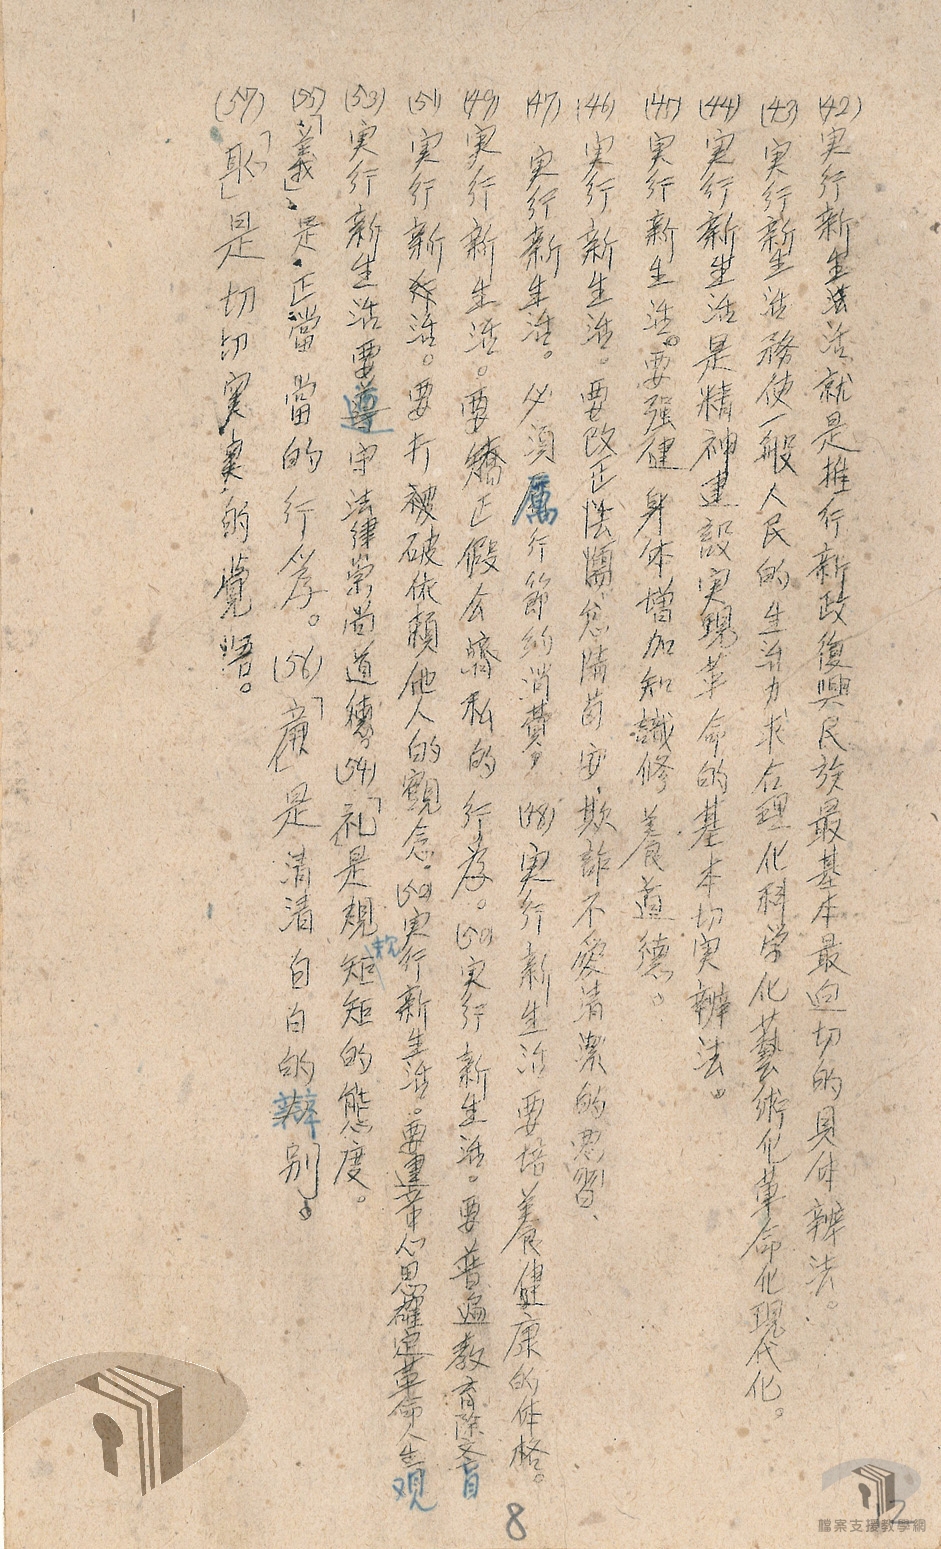 (42)実行新生法活就是推行新政復興民族最基本最迫切的具体辦法。
(43)実行新生活務使一般人民的生活力求合理化科学化藝術化革命化現代化。
(44)実行新生活是精神建設実現革命的基本切実辦法。
(45)実行新生活。要强健身体增加知識修養道德。
(46)実行新生活。要改正怯懦怠惰苟安、欺詐不愛清潔的悪習、
(47)実行新生活。必須厲行節約消費，(48)実行新生活要培養健康的体格。
(49)実行新生活。要矯正假公濟私的行為。(50)実行新生活。要普遍教育除文盲
(51)実行新活。要打被破依賴他人的觀念。(52)実行新生活。要建革心思確定革命人生观
(53)実行新生活要遵守法律崇尚道德。(54)「礼」是規規矩矩的態度。
(55)「義」是正當當的行為。(56)「廉」是清清白白的辦别。
(57)「恥」是切切実実的覺悟。
8
12
檔案支援教學網